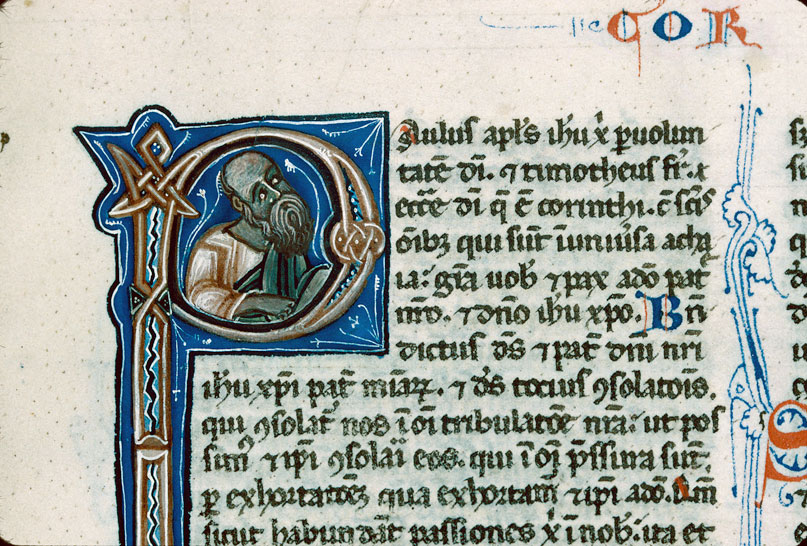 COR
Paulus apl's ihu x̄ p uolun
tatē dī. ⁊ timotheus fr̄. ⁊
eccē dī q̄ ē corinthi. c̄ sc̄is
oīb; qui sūt ī uniuīsa acha
ia: grā uob̄ ⁊ pax a dō pat̄
nr̄o. ⁊ dn̄o ihu xp̄o. Bn̄
dictus dˢ ⁊ pat̄ dn̄i nr̄i
ihu xp̄i pat̄ mīaꝝ. ⁊ dˢ tocius ꝯsolatōis.
qui ꝯsolat̄ nos ī oī tribulatōe nr̄a: ut pos
sim᷒ ⁊ ip̄i ꝯsolari eos. qui ī oī p̄ssura sūt,
p exhortatōē qua exhortam̄ ⁊ ip̄i a dō. Qm̄
sicut habundāt passiones x̄ ī nob̄: ita et